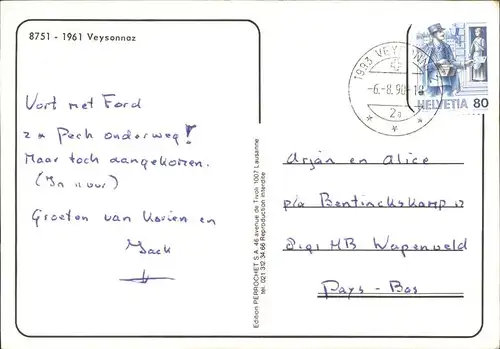 8751 - 1961 Veysonnaz
1993 VEYSONNAZ
-6.-8.90-1
2a
HELVETIA 80
Vort met Ford
2x Pech onderweg!
Maar toch aangekomen.
(In 11 uur)
Groeten van Karien en
Jack
Edition PERROCHET S.A. 46 avenue de Tivoli 1007 Lausanne
tél. 021 312 34 66 Reproduction interdite
Arjan en Alice
p/a Bentinckskamp 12
8191 HB Wapenveld
Pays-Bas